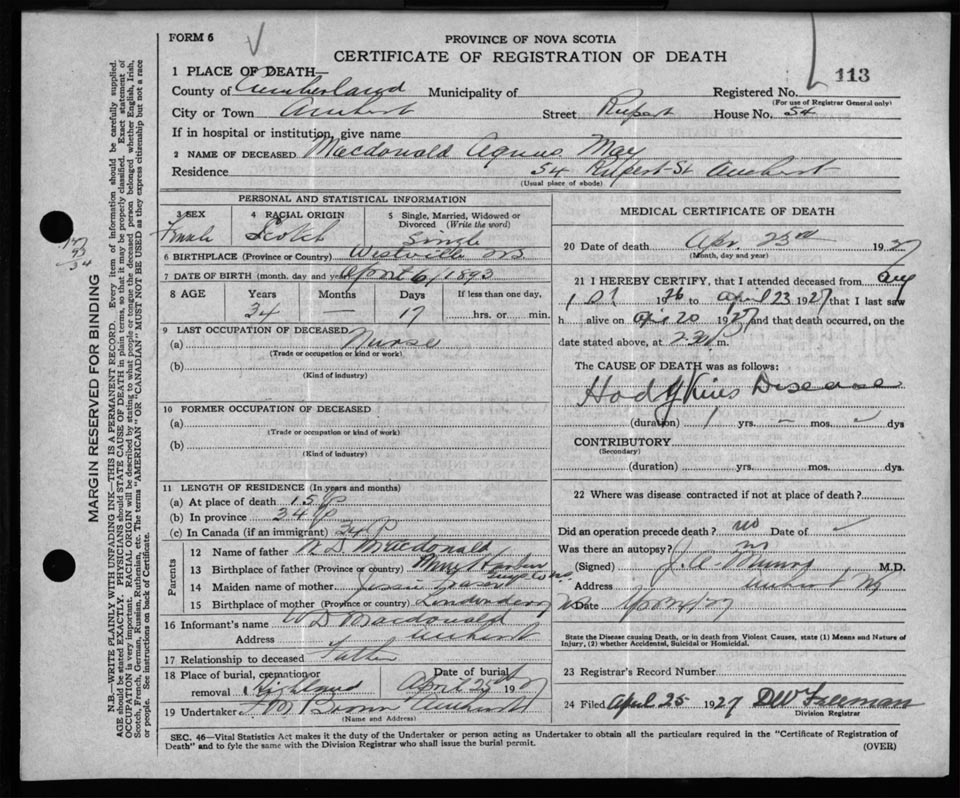 FORM 6
PROVINCE OF NOVA SCOTIA
CERTIFICATE OF REGISTRATION OF DEATH
113
1 PLACE OF DEATH—
County of Cumberland Municipality of Registered No.
(For use of Registrar General only)
City or Town Amherst Street Rupert House No. 54
If in hospital or institution, give name
2 NAME OF DECEASED Macdonald Agnes May
Residence 54 Rupert St Amherst
(Usual place of abode)
PERSONAL AND STATISTICAL INFORMATION
3 SEX 4 RACIAL ORIGIN 5 Single, Married, Widowed or Divorced (Write the word)
Female Scotch Single
6 BIRTHPLACE (Province or Country) Westville N.S
7 DATE OF BIRTH (month, day and year) April 6, 1893
8 AGE Years Months Days If less than one day,
34 — 17 hrs. or min.
9 LAST OCCUPATION OF DECEASED
(a) Nurse
(Trade or occupation or kind or work)
(b)
(Kind of industry)
10 FORMER OCCUPATION OF DECEASED
(a)
(Trade or occupation or kind of work)
(b)
(Kind of industry)
11 LENGTH OF RESIDENCE (In years and months)
(a) At place of death 15
(b) In province 34
(c) In Canada (if an immigrant) 34
Parents
12 Name of father W D Macdonald
13 Birthplace of father (Province or country) Harbor
14 Maiden name of mother Jessie Fraser
15 Birthplace of mother (Province or country) Londonderry NS
16 Informant's name W D Macdonald
Address Amherst
17 Relationship to deceased Father
18 Place of burial, cremation or removal Highland Date of burial April 25th 1927
19 Undertaker Brown Amherst
(Name and Address)
MEDICAL CERTIFICATE OF DEATH
20 Date of death Apr. 23rd 1927
(Month, day and year)
21 I HEREBY CERTIFY, that I attended deceased from Aug
1st 1926 to April 23 1927 that I last saw
h alive on Apr 20 1927 and that death occurred, on the
date stated above, at m.
The CAUSE OF DEATH was as follows:
Hodgkins Disease
(duration) 1 yrs. – mos. dys
CONTRIBUTORY
(Secondary)
(duration) yrs. mos. dys.
22 Where was disease contracted if not at place of death?
Did an operation precede death? no Date of
Was there an autopsy? no
J. A. Munro M.D.
Address Amherst NS
Date Apr 24/27
State the Disease causing Death, or in death from Violent Causes, state (1) Means and Nature of
Injury, (2) whether Accidental, Suicidal or Homicidal.
23 Registrar's Record Number
24 Filed April 25 1927 DW Freeman
Division Registrar
SEC. 46—Vital Statistics Act makes it the duty of the Undertaker or person acting as Undertaker to obtain all the particulars required in the "Certificate of Registration of
Death" and to fyle the same with the Division Registrar who shall issue the burial permit.
(OVER)
MARGIN RESERVED FOR BINDING
N.B.—WRITE PLAINLY WITH UNFADING INK—THIS IS A PERMANENT RECORD. Every item of information should be carefully supplied.
AGE should be stated EXACTLY. PHYSICIANS should STATE CAUSE OF DEATH in plain terms, so that it may be properly classified. Exact statement of
OCCUPATION is very important. RACIAL ORIGIN will be described by stating to what people or tongue the deceased person belonged whether English, Irish,
Scotch, French, German, Russian, Ruthenian, etc. The terms "AMERICAN" OR "CANADIAN" MUST NOT BE USED as they express citizenship but not a race
or people. See instructions on back of Certificate.